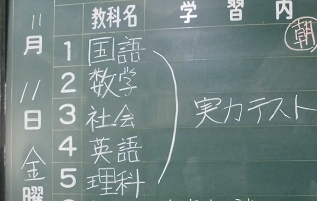 教科名 学習内
11月11日金曜
朝
1 国語
2 数学
3 社会
4 英語
5 理科
実力テスト